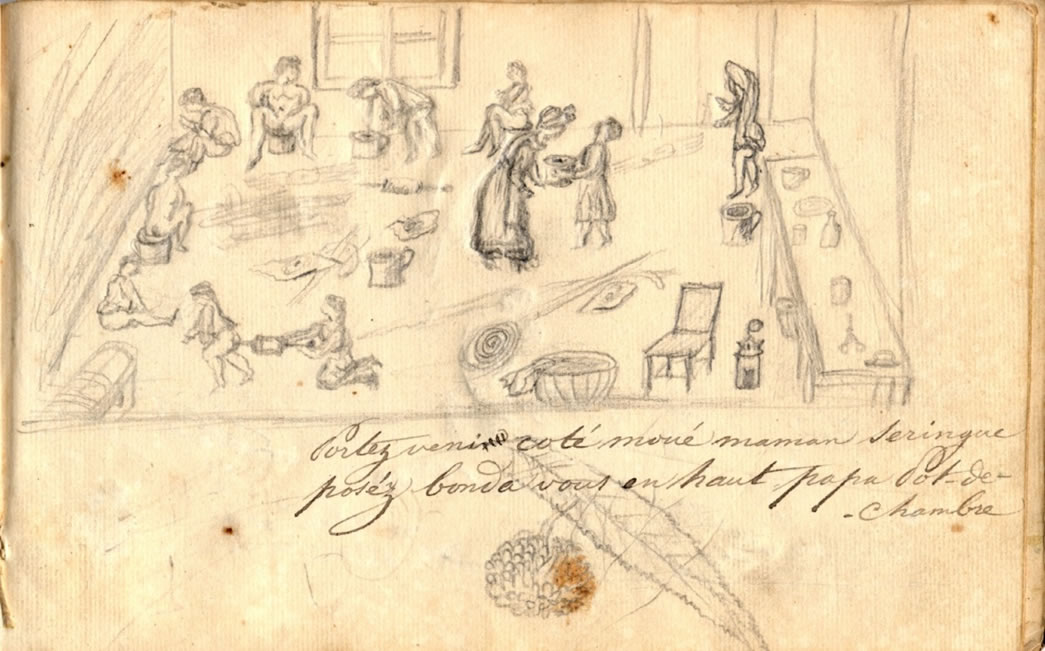 Portez venir coté moué maman Seringue
poséz bonda vous en haut papa Pot-de-
-chambre